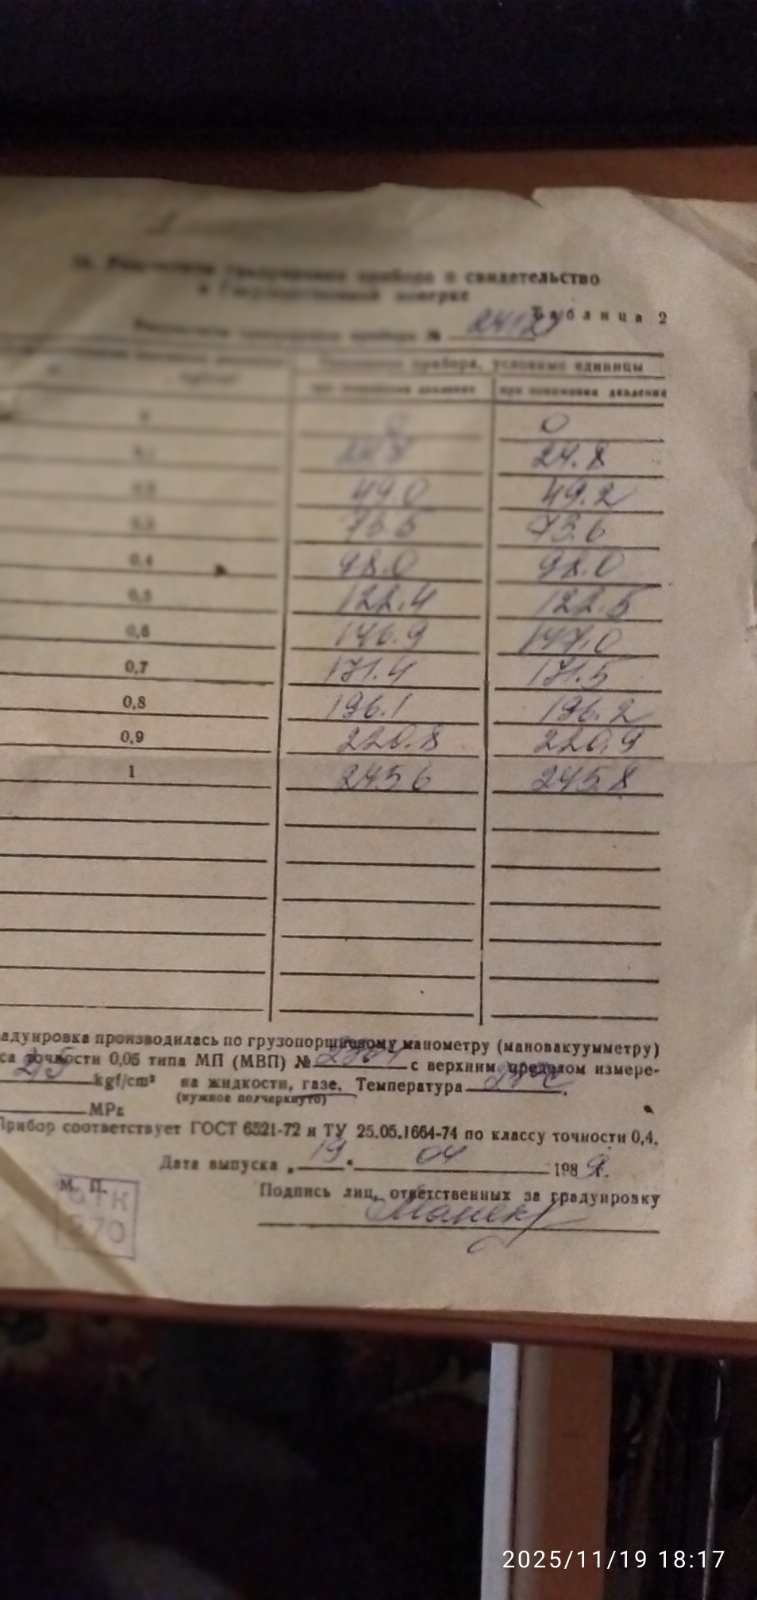 Результаты градуировки прибора и свидетельство
о Государственной поверке
Таблица 2
Результаты градуировки прибора №
прибора, условные единицы
при повышении давления при понижении давления
0 0
24.8
0,2 49.0 49.2
0,3 73.6
0,4 98.0 98.0
0,5 122.4 122.5
0,6 146.9 147.0
0,7 171.4 171.5
0,8 196.1 196.2
0,9 220.8 220.9
1 245.6 245.8
адуировка производилась по грузопоршневому манометру (мановакуумметру)
са точности 0,05 типа МП (МВП) № с верхним пределом измере-
2,5 kgf/cm² на жидкости, газе. Температура
(нужное подчеркнуто)
МРа
Прибор соответствует ГОСТ 6521-72 и ТУ 25.05.1664-74 по классу точности 0,4.
Дата выпуска „19“ 04 1989г.
М. П.
ОТК
270
Подпись лиц, ответственных за градуировку
2025/11/19 18:17